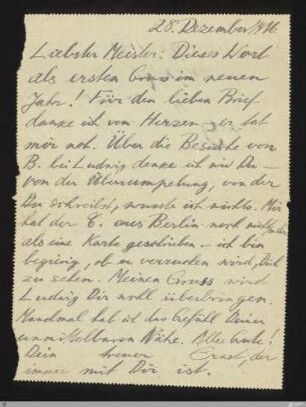 28. Dezember 1916
Liebster Meister: Dieses Wort
als ersten Gruss im neuen
Jahr! Für den lieben Brief
danke ich von Herzen – er tat
mir not. Über die Besuche von
B. bei Ludwig denke ich wie Du –
von der Überrumpelung, von der
Du schreibst, wusste ich nichts. Mir
hat der E. aus Berlin noch nicht
als eine Karte geschrieben – ich bin
begierig, ob er versuchen wird, Dich
zu sehen. Meinen Gruss wird
Ludwig Dir wohl überbringen.
Manchmal hab ich das Gefühl Deiner
unmittelbaren Nähe. Alles Gute!
Dein treuer Ernst, der
immer mit Dir ist.